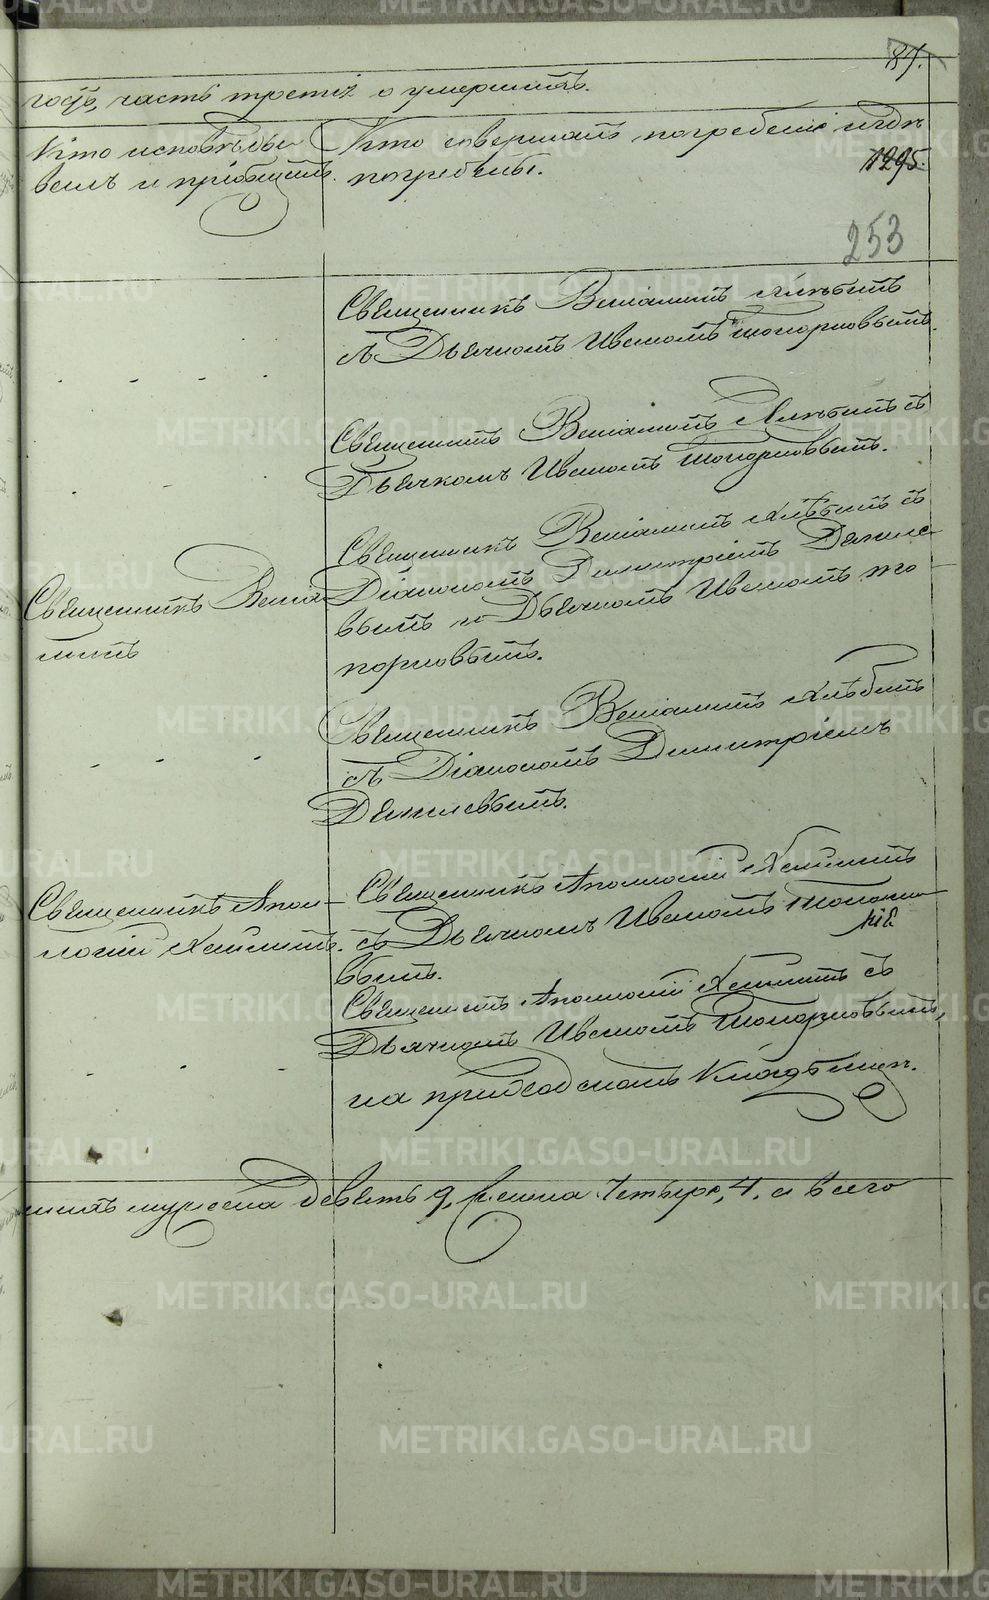 87.
годъ, часть третія о умершихъ.
Кто исповѣды
валъ и пріобщалъ.
Кто совершалъ погребеніе и гдѣ
погребены.
1295.
253
Священникъ Веніаминъ Хлѣбинъ
съ Дьячкомъ Иваномъ Топорковымъ.
Священникъ Веніаминъ Хлѣбинъ съ
Дьячкомъ Иваномъ Топорковымъ.
Священникъ Веніа
минъ
Священникъ Веніаминъ Хлѣбинъ съ
Діакономъ Димитріемъ
вымъ и Дьячкомъ Иваномъ То
порковымъ.
Священникъ Веніаминъ Хлѣбинъ
съ Діакономъ Димитріемъ
Священникъ Апол-
лоній
Священникъ Аполлоній
съ Дьячкомъ Иваномъ
вымъ.
Священникъ Аполлоній съ
Дьячкомъ Иваномъ Топорковымъ,
на приходскомъ кладбищѣ.
мужеска девять 9, женска четыре, 4, а всего
METRIKI.GASO-URAL.RU